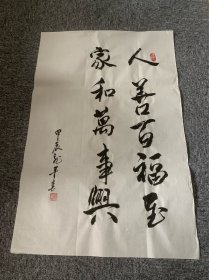 人善百福至
家和萬事興
甲辰年